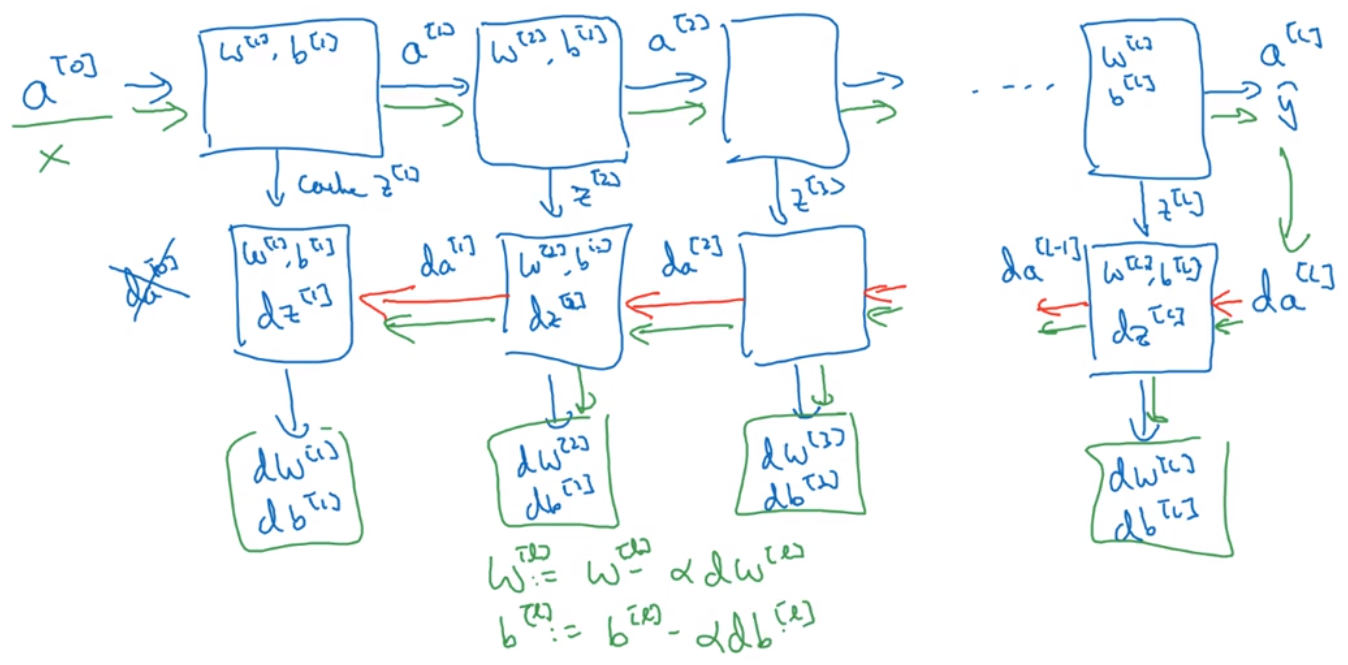 a^[0]
x
w^[1], b^[1]
a^[1]
w^[2], b^[2]
a^[2]
....
w^[L]
b^[L]
a^[L]
ŷ
cache z^[1]
z^[2]
z^[3]
z^[L]
da^[0]
w^[1], b^[1]
dz^[1]
da^[1]
w^[2], b^[2]
dz^[2]
da^[2]
da^[L-1]
w^[L], b^[L]
dz^[L]
da^[L]
dw^[1]
db^[1]
dw^[2]
db^[2]
dw^[3]
db^[3]
dw^[L]
db^[L]
W^[l] := W^[l] - αdw^[l]
b^[l] := b^[l] - αdb^[l]